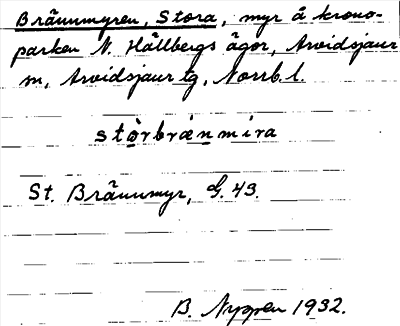 Brännmyren, Stora, myr å krono-
parken N. Hällbergs ägor, Arvidsjaur
sn, Arvidsjaur tg, Norrb. l.
stòrbrénmìra
St. Brännmyr, G. 43.
B. Nyppen 1932.